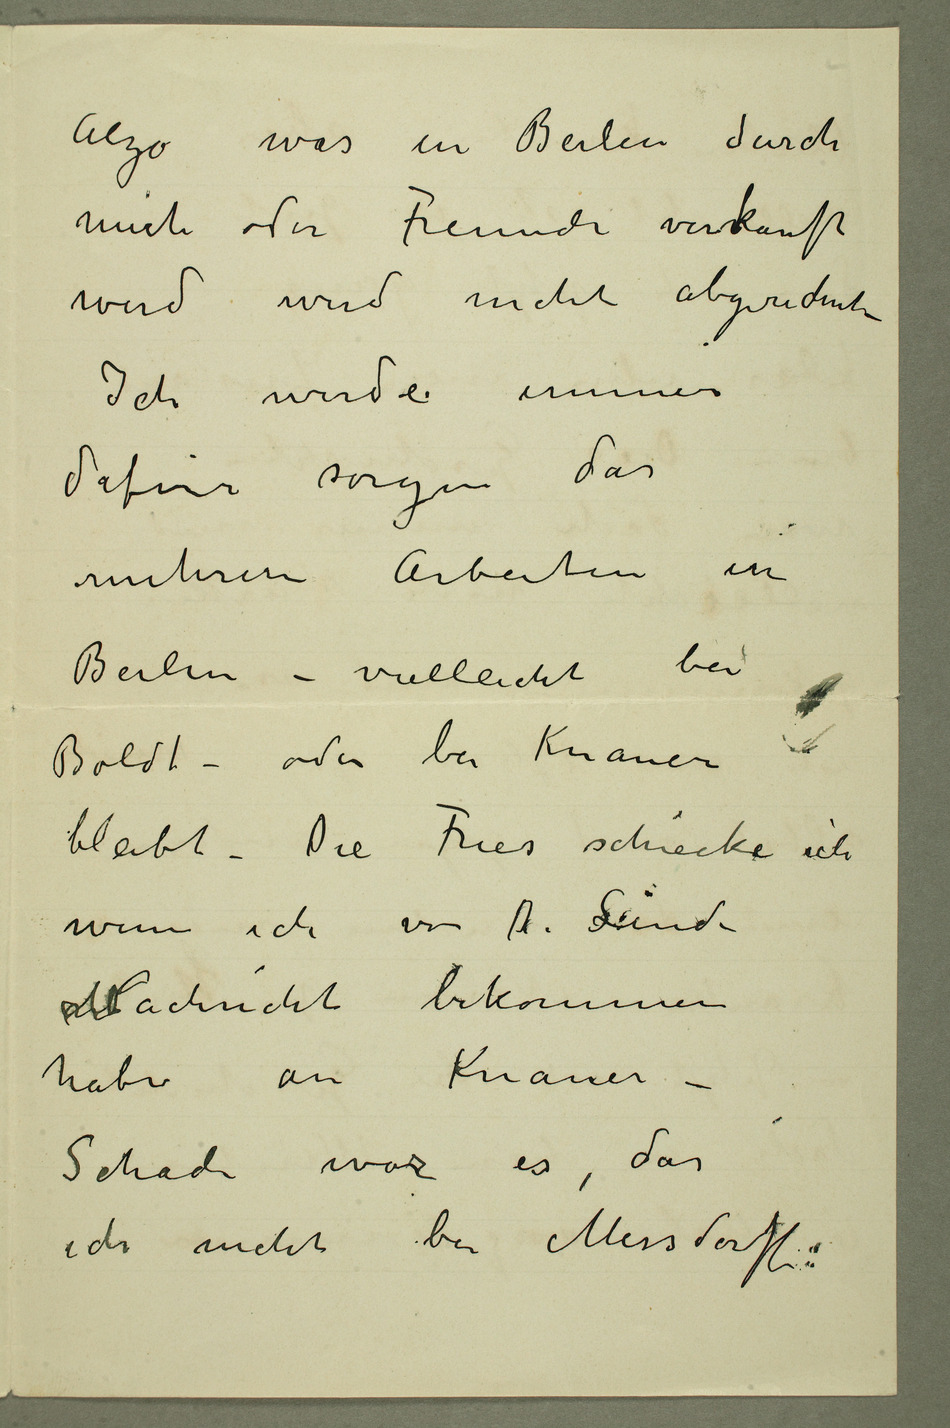 Alzo was in Berlin durch
mich oder Freunde verkauft
wird wird nicht abgeredent
Ich werde immer
dafür sorgen das
mehrere Arbeiten in
Berlin – vielleicht bei
Boldt – oder bei Knauer
bleibt – Die Fries schiecke ich
wenn ich von D. Linde
Nachricht bekommen
habe an Knauer –
Schade war es, das
ich nicht bei Messdorff